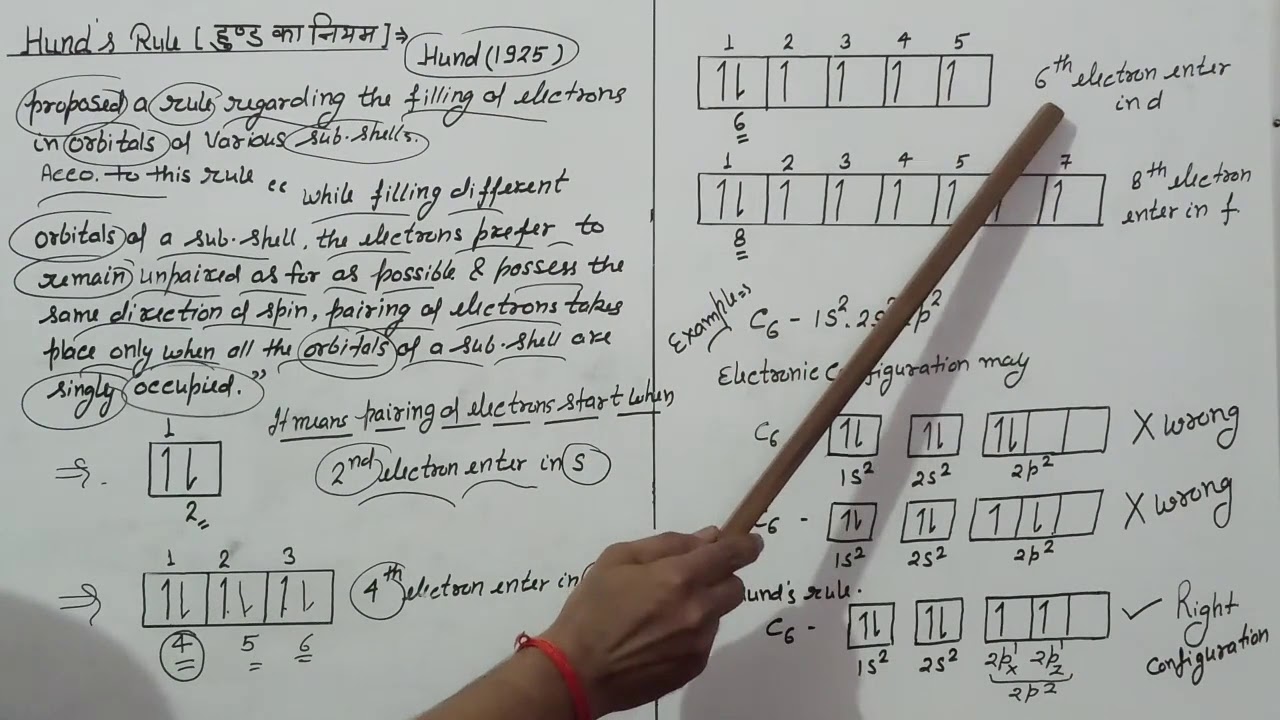 Hund's Rule [हुण्ड का नियम] ⇒
Hund (1925)
proposed a rule regarding the filling of electrons
in orbitals of various sub-shells.
Acco. to this rule "while filling different
orbitals of a sub-shell, the electrons prefer to
remain unpaired as for as possible & possess the
same direction of spin, pairing of electrons takes
place only when all the orbitals of a sub-shell are
singly occupied."
It means pairing of electrons start when
1
⇒ 1⇂ 2nd electron enter in s
2
1 2 3
⇒ 1⇂ 1⇂ 1⇂ 4th electron enter in
4 5 6
1 2 3 4 5
1⇂ 1 1 1 1 6th electron enter
in d
6
1 2 3 4 5 7
1⇂ 1 1 1 1 1 8th electron
enter in f
8
Examples
C6 - 1S². 2S² 2p²
Electronic Configuration may
C6 1⇂ 1⇂ 1⇂ X wrong
1S² 2S² 2p²
C6 - 1⇂ 1⇂ 1 ⇂ X wrong
1S² 2S² 2p²
Hund's rule.
C6 - 1⇂ 1⇂ 1 1 ✓ Right
configuration
1S² 2S² 2px¹ 2pz¹
2p²